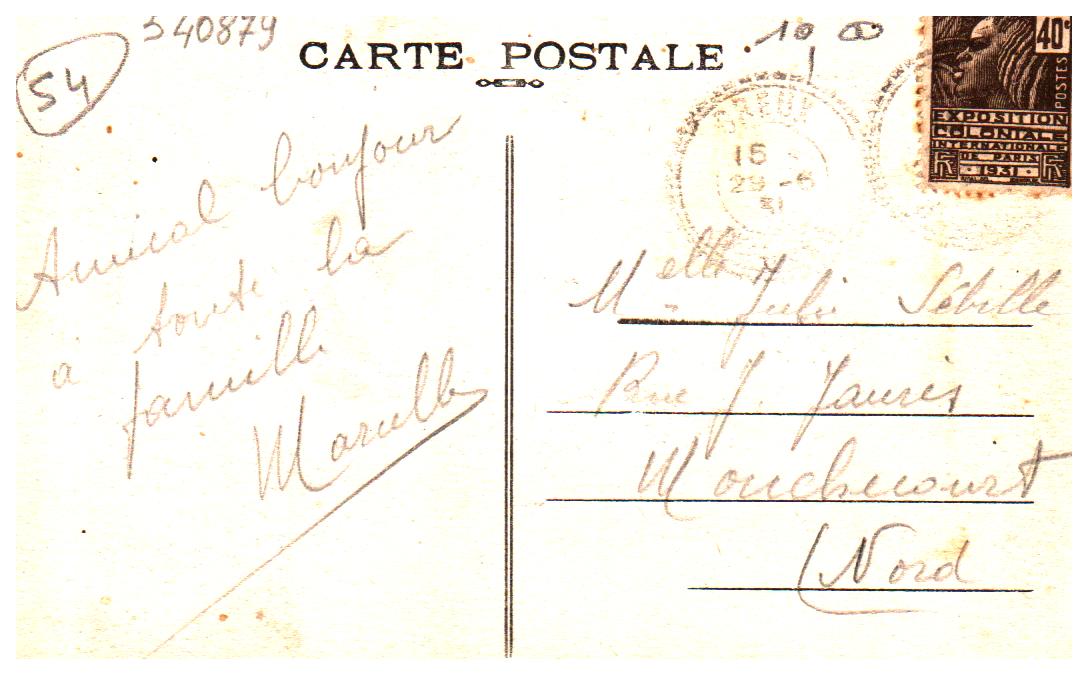 54
540879
CARTE POSTALE
10
40c
POSTES
EXPOSITION
COLONIALE
INTERNATIONALE
DE PARIS
1931
15
29-6
31
Amical bonjour
à toute la
famille
Marcelle
Melle Julie Sébille
Rue J. Jaurès
Monchecourt
(Nord